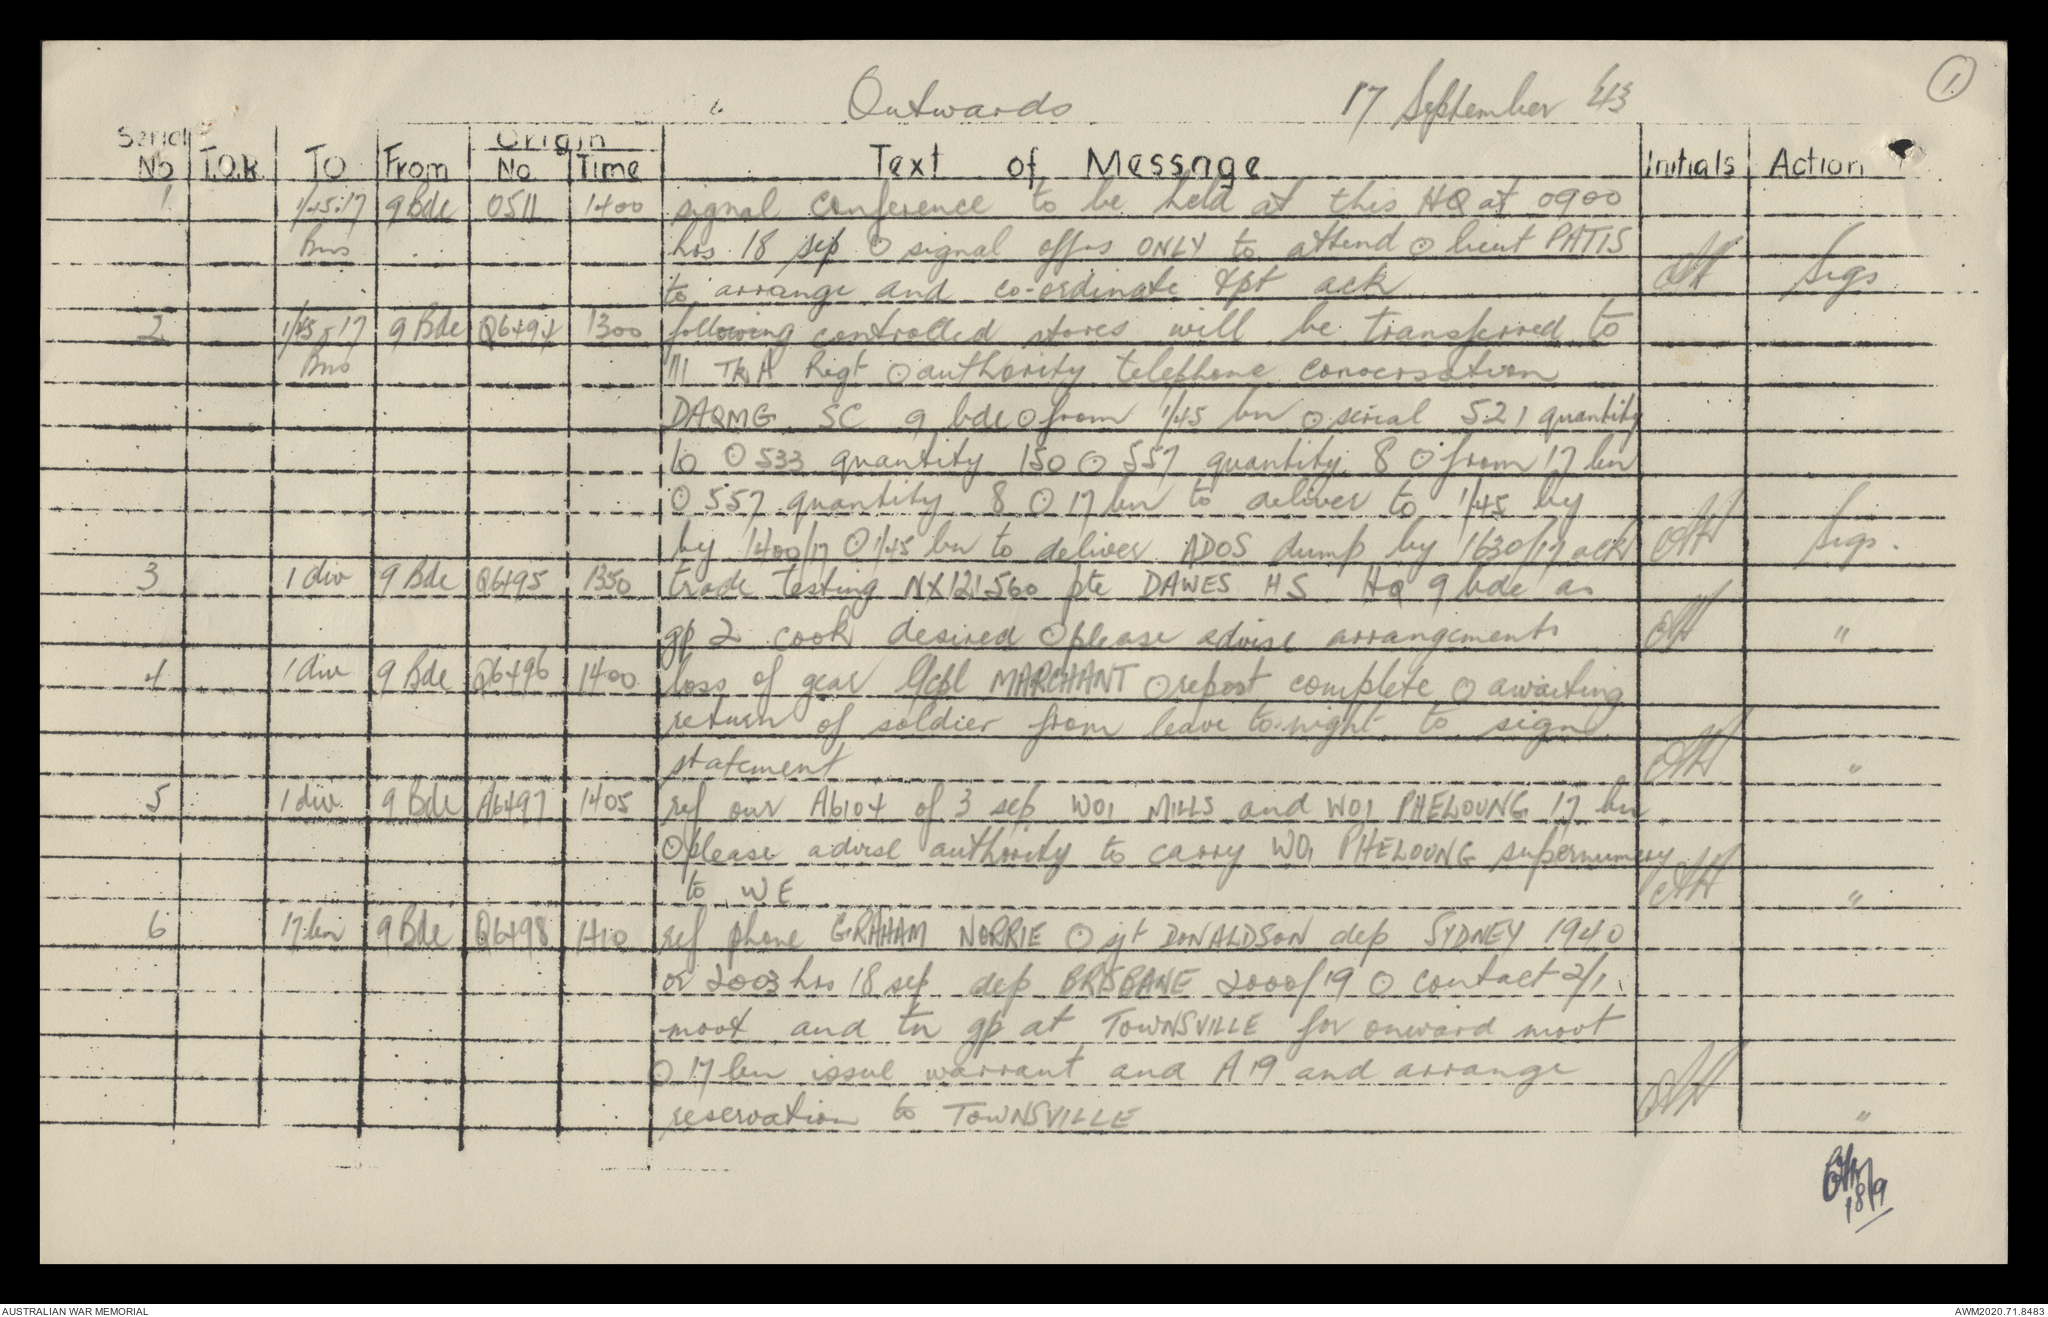 Outwards 17 September '43 1.
Serial No T.O.R TO From Origin No Time Text of Message Initials Action
1 1/45:17 9 Bde 0511 1400 signal conference to be held at this HQ at 0900
Bns hrs 18 sep O signal offrs ONLY to attend O lieut PATIS
to arrange and co-ordinate tpt ack Sigs
2 1/45-17 9 Bde Q6494 1300 following controlled stores will be transferred to
Bns 111 TkA Regt O authority telephone conversation
DAQMG SC 9 bde O from 1/45 bn O serial 521 quantity
10 O 533 quantity 150 O 557 quantity 8 O from 17 bn
O 557 quantity 8 O 17 bn to deliver to 1/45 by
by 1400/17 O 1/45 bn to deliver ADOS dump by 1630/17 ack Sigs.
3 1 div 9 Bde Q6495 1350 trade testing NX121560 pte DAWES HS HQ 9 bde as
gp 2 cook desired O please advise arrangements "
4 1 div 9 Bde Q6496 1400 loss of gear l/cpl MARCHANT O report complete O awaiting
return of soldier from leave to-night to sign
statement "
5 1 div 9 Bde A6497 1405 ref our A6104 of 3 sep WO1 MILLS and WO1 PHELOUNG 17 bn
O please advise authority to carry WO1 PHELOUNG supernumery
to WE "
6 17 bn 9 Bde Q6498 1410 ref phone GRAHAM NORRIE O sjt DONALDSON dep SYDNEY 1940
or 2003 hrs 18 sep dep BRISBANE 2000/19 O contact 2/1
movt and tn gp at TOWNSVILLE for onward movt
O 17 bn issue warrant and A19 and arrange
reservation to TOWNSVILLE "
18/9
AUSTRALIAN WAR MEMORIAL AWM2020.71.8483